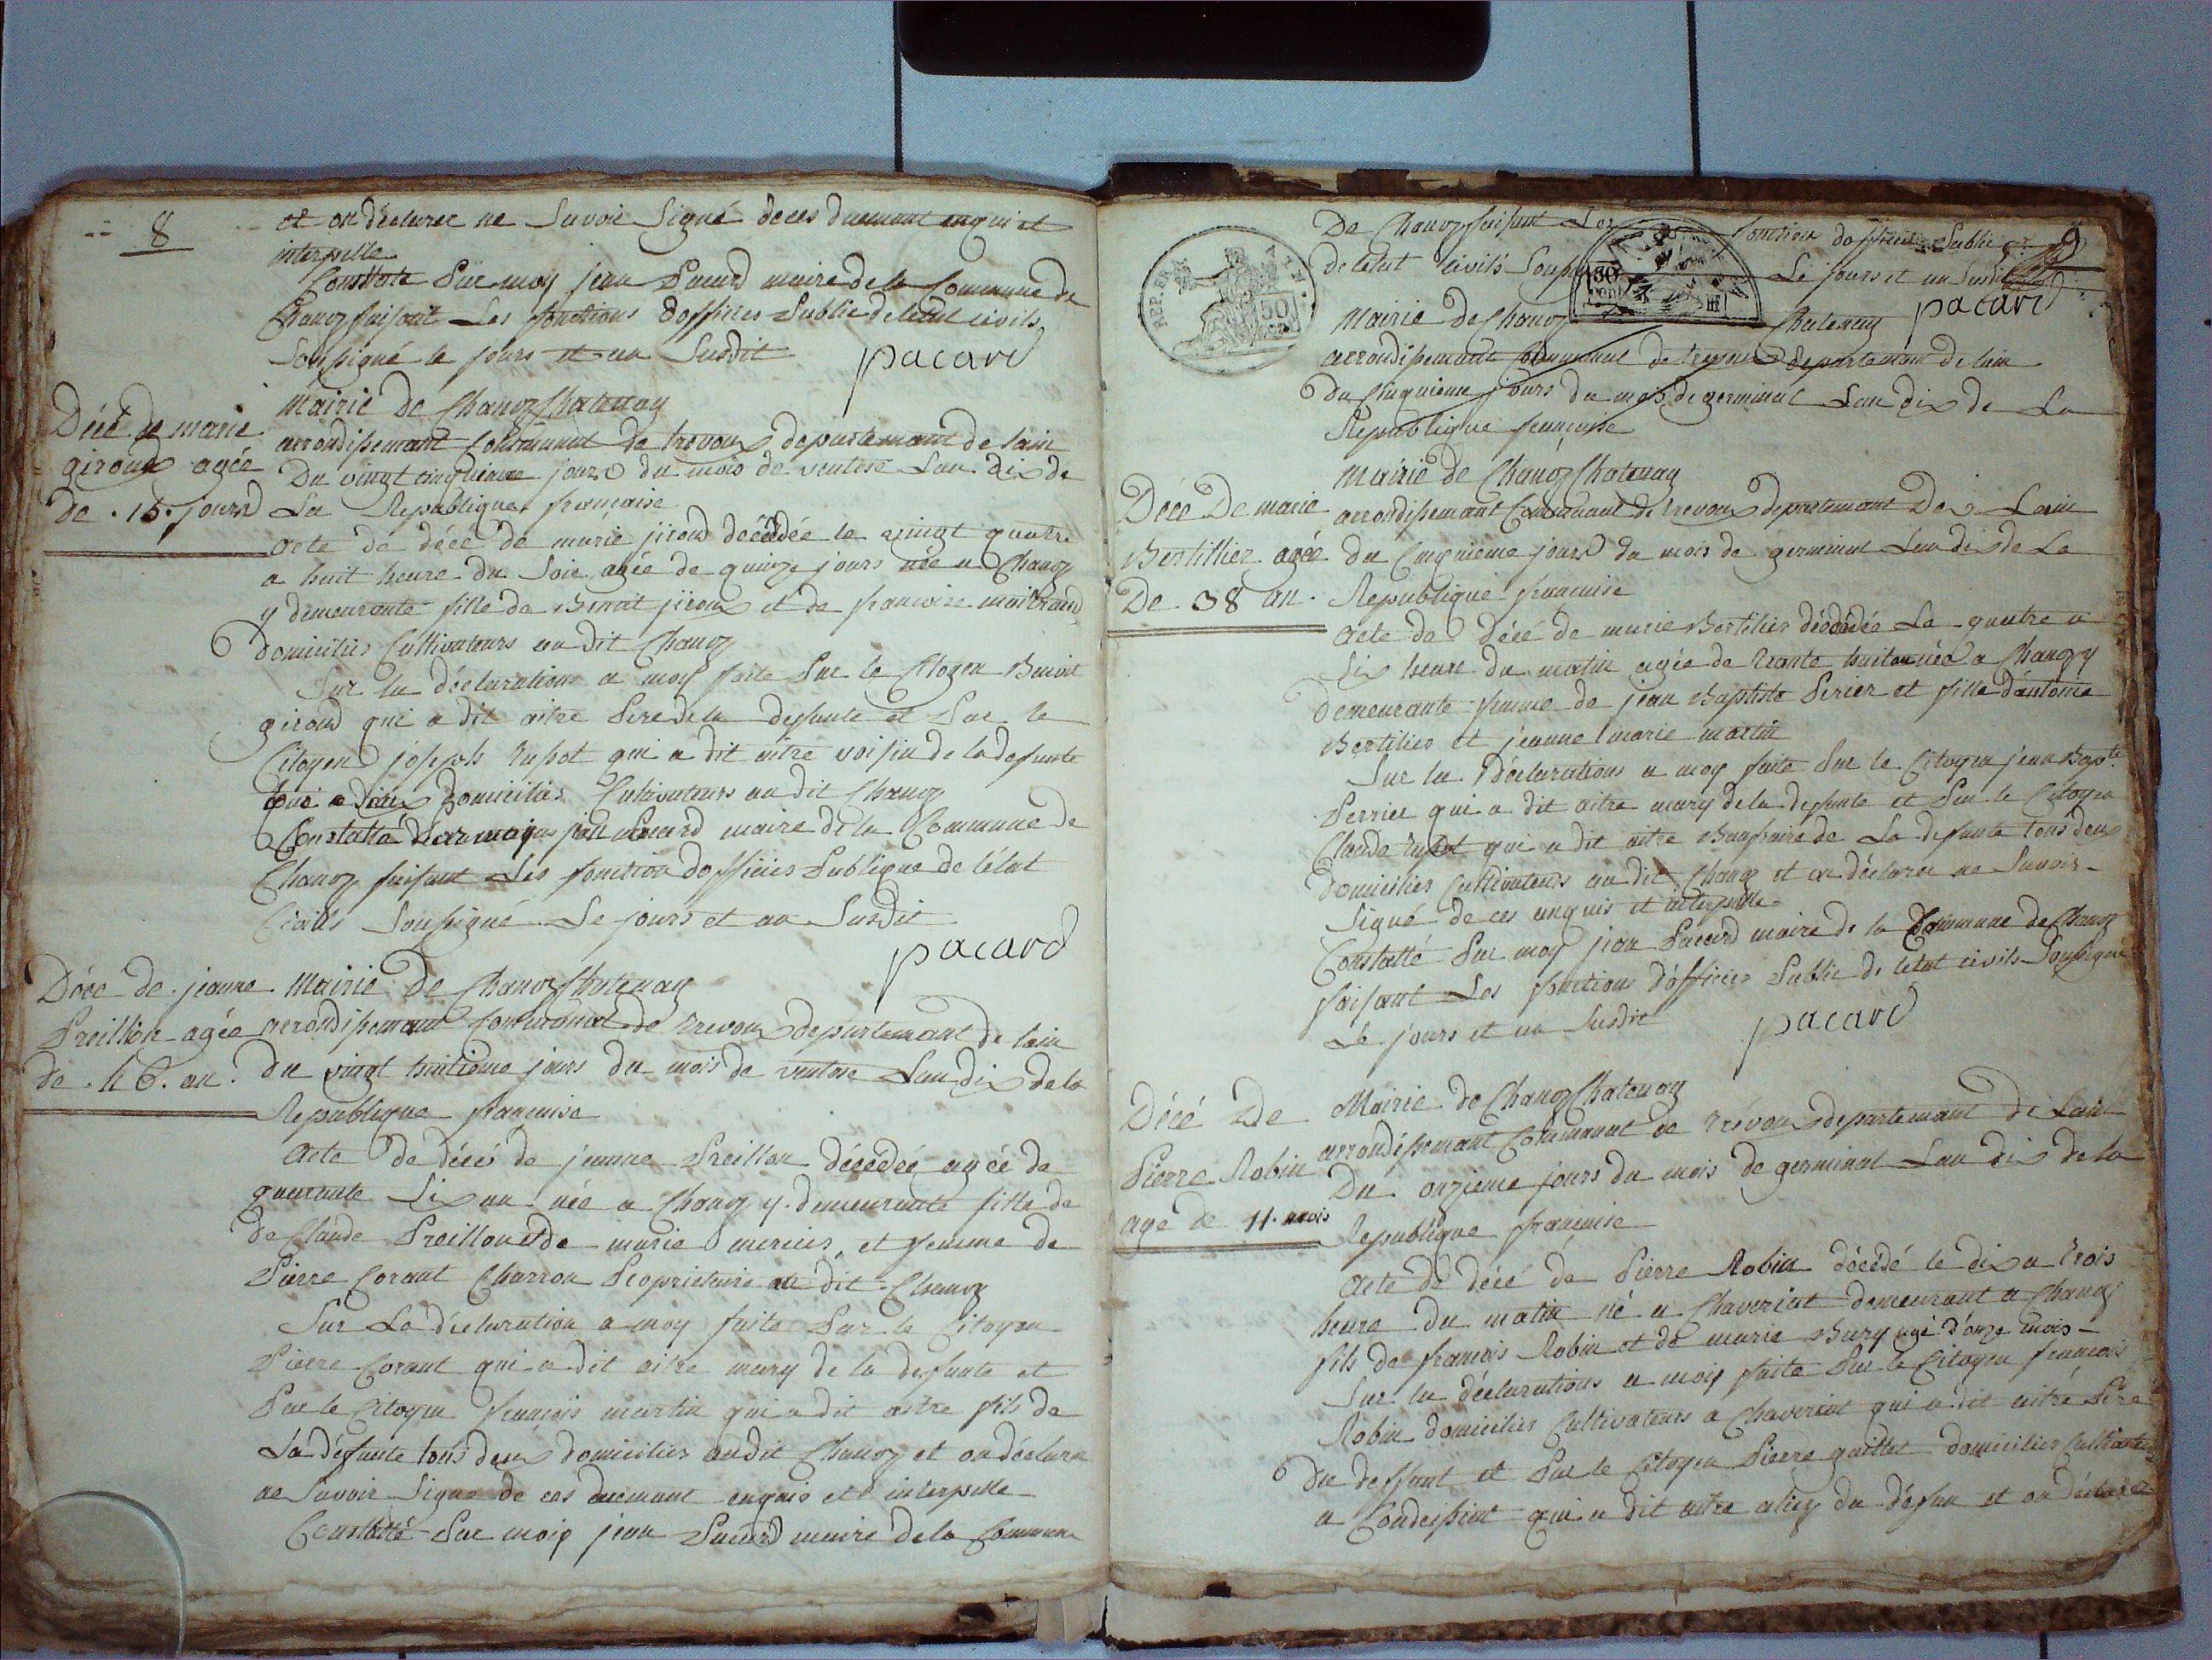 8
et on déclarée ne Savoir Signé de ces duemant enquis et
interpelle
Constaté Par moy jean Pacard maire de la Commune de
Chanoz faisant Les fonctions dofficier Public de letat civils
Soussigné le jours et an Susdit
pacard
Décé de marie
giroud agée
de . 15 . jours
Mairie de Chanoz Chatenay
arrondissemant Communal de trevoux departemant de lain
Du vingt cinquieme jours du mois de ventose Lan dix de
La Republique française
acte de décé de marie jiroud décédée le vingt quatre
a huit heure du Soir agée de quinze jours née a Chanoz
y demeurante fille de Benoit jiroud et de francoise
Domicilies Cultivateurs au dit Chanoz
Sur la déclaration a moy faite Par le Citoyen Benoit
giroud qui a dit aitre Pere de la defunte et Par le
Citoyen joseph qui a dit aitre voisin de la defunte
Domicilies Cultivateurs au dit Chanoz
Constatté Par moy jean Pacard maire de la Commune de
Chanoz faisant Les fonction dofficies Publique de létat
Civils Soussigné Le jours et an Susdit
pacard
Décé de jeanne
Preillon agée
de . 46 . an .
Mairie de Chanoz Chatenay
arrondissemant Communal de trevoux departemant de lain
du vingt huitieme jours du mois de ventose Lan dix de la
Republique francaise
acte de décé de jeanne Preillon décédée agée de
quarante Six an née a Chanoz y demeurante fille de
de Claude Preillon et de marie mercier et femme de
Pierre Corant Charron Propriétaire au dit Chanoz
Sur La déclaration a moy faite Par le Citoyen
Pierre Corant qui a dit aitre mary de la defunte et
Par le Citoyen francois martin qui a dit aitre fils de
La défunte tous deux domicilies audit Chanoz et on déclare
ne Savoir Signe de ces duemant enquis et interpelle
Constatté Par moy jean Pacard maire de la Commune
9
REP. FRA.
50
De Chanoz faisant Les fonction dofficier Public
de letat civils Soussigné Le jours et an Susdit
pacard
Mairie de Chanoz Chatenay
arrondissemant Communal de trevoux departemant de lain
Du Cinquieme jours du mois de germinal Lan dix de La
Republique francaise
Décé De marie
Bertillier agée
De . 38 an .
Mairie de Chanoz Chatenay
arrondissemant Communal de trevoux departemant De Lain
du Cinquieme jours du mois de germinal Lan dix de La
Republique francaise
acte de décé de marie Bertilier décédée Le quatre a
Six heure du matin agée de trante huit an née a Chanoz y
demeurante femme de jean Baptiste Perier et fille dantoine
Bertilier et jeanne marie martin
Sur la Déclarations a moy faite Par le Citoyen jean Bapte
Perrier qui a dit aitre mary de la defunte et Par le Citoyen
Claude qui a dit aitre Beaufraire de La defunte tous deux
domicilies Cultivateurs au dit Chanoz et on déclarée ne Savoir
Signé de ces enquis et interpelle
Constatté Par moy jean Pacard maire de la Commune de Chanoz
faisant Les fonctions dofficier Public de letat civils Soussigné
Le jours et an Susdit
pacard
Décé De
Pierre Robin
age de 11 . mois
Mairie de Chanoz Chatenay
arrondissemant Communal de trevoux departemant de Lain
Du onzieme jours du mois de germinal Lan dix de la
Republique francaise
acte de décé de Pierre Robin décédé le dix a trois
heure du matin né a Chaveriat demeurant a Chanoz
fils de francois Robin et de marie Bury agé d'onze mois
Sur la déclarations a moy faite Par le Citoyen francois
Robin domicilies Cultivateurs a Chaveriat qui a dit aitre Pere
du deffunt et Par le Citoyen Pierre guillet domicilies Cultivateur
a Condeissiat qui a dit aitre du défun et on déclarée